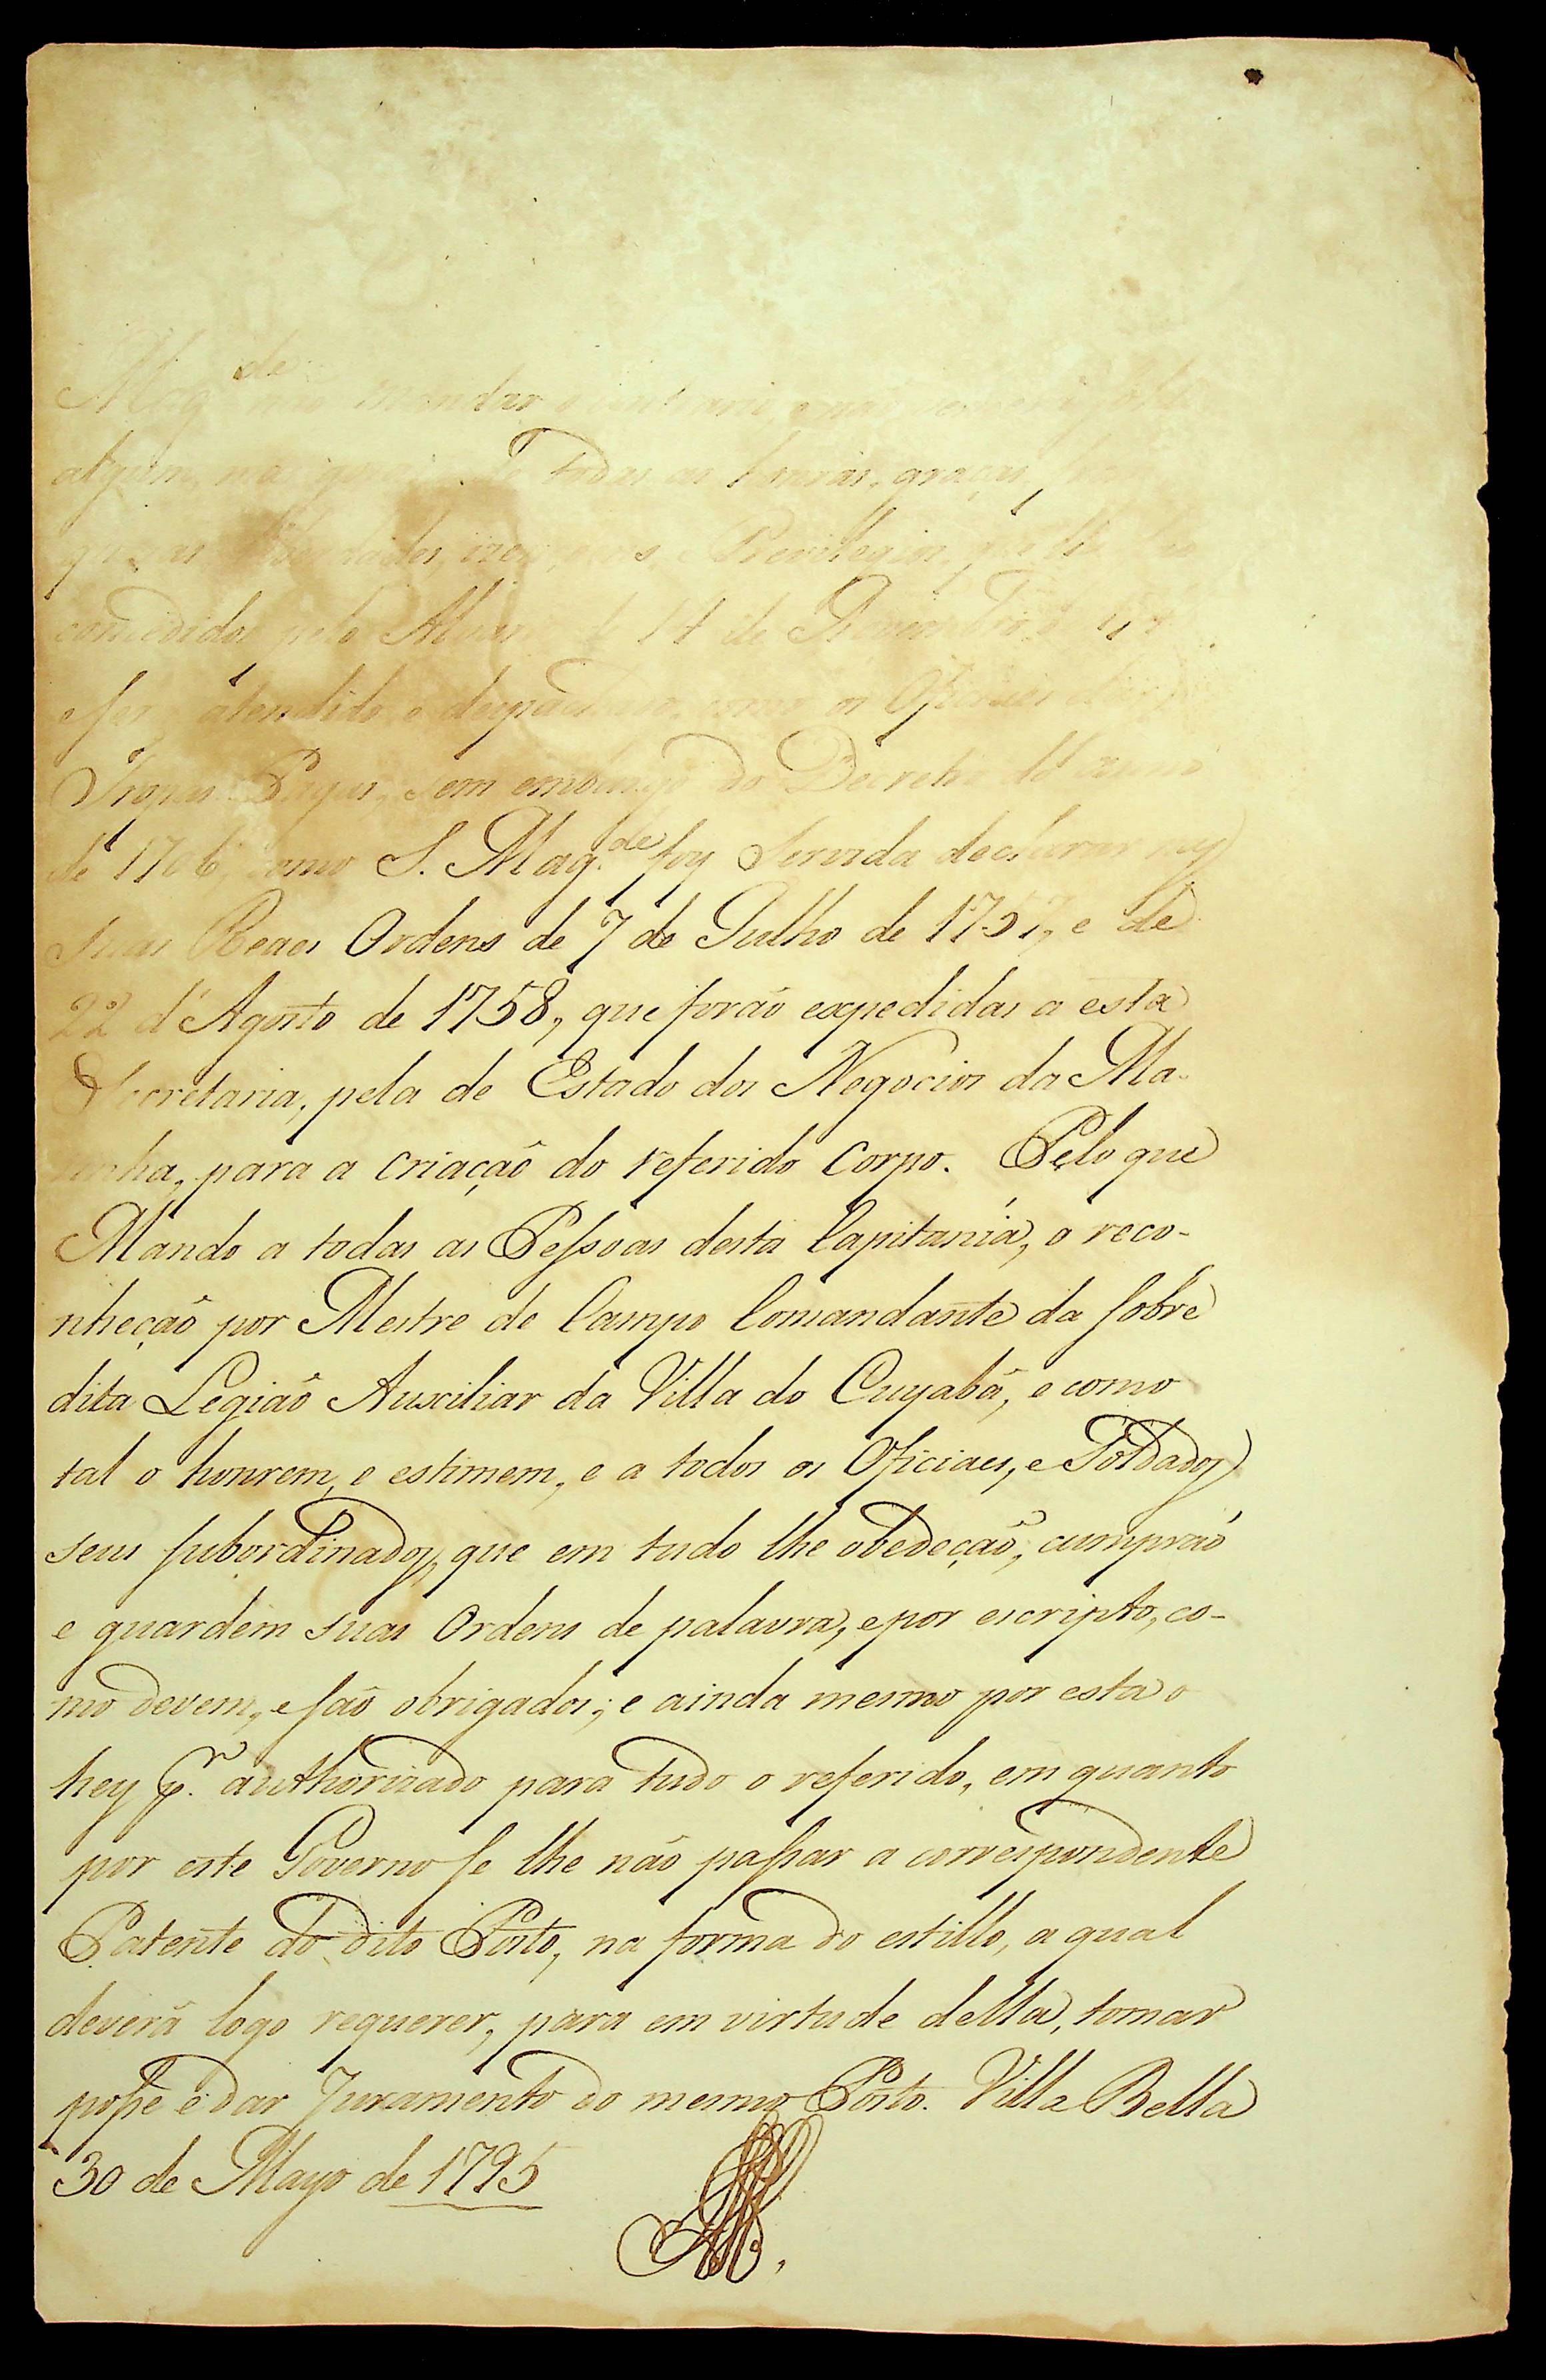 Mag.de mandar
algum, todas as honras, graças,
Previlegios,
concedidos pelo 14 de
atendido, e como os Oficiaes
Tropas Pagas, sem embargo do Decreto
de 1706, como S. Mag.de foy Servida declarar
suas Reaes Ordens de 7 de Julho de 1757, e de
22 d'Agosto de 1758, que forão expedidas a esta
Secretaria, pela de Estado dos Negocios da Ma-
rinha, para a criação do referido Corpo. Pelo que
Mando a todas as Pessoas desta Capitania, o reco-
nheção por Mestre de Campo Comandante da sobre
dita Legião Auxiliar da Villa do Cuyabá, e como
tal o honrem, e estimem, e a todos os Oficiaes, e Soldados
seus subordinados, que em tudo lhe obedeção, cumprão
e guardem suas Ordens de palavra, e por escripto, co-
mo devem, e são obrigados; e ainda mesmo por esta o
hey p.r authorizado para tudo o referido, em quanto
por este Governo se lhe não passar a correspondente
Patente do dito Posto, na forma do estillo, a qual
deverá logo requerer, para em virtude della, tomar
posse e dar Juramento do mesmo Posto. Villa Bella
30 de Mayo de 1795